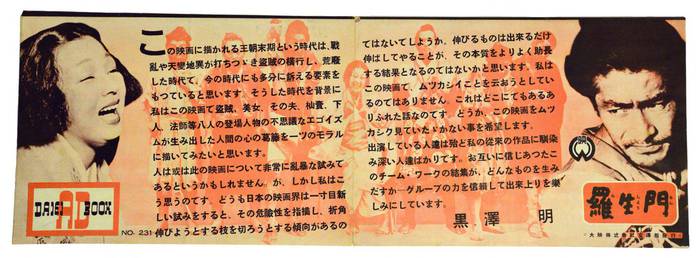 この映画に描かれる王朝末期という時代は、戦
乱や天變地異が打ちつゞき盗賊の横行し、荒廢
した時代で、今の時代にも多分に訴える要素を
もつていると思います。そうした時代を背景に
私はこの映画で盗賊、美女、その夫、杣賣、下
人、法師等八人の登場人物の不思議なエゴイズ
ムが生み出した人間の心の葛藤を一ツのモラル
に描いてみたいと思います。
人は或は此の映画について非常に乱暴な試みで
あるというかもしれませんが、しかし私はこ
う思うのです、どうも日本の映画界は一寸目新
しい試みをすると、その危険性を指摘し、折角
伸びようとする枝を切ろうとする傾向があるの
DAIEI AD BOOK
NO. 231
ではないでしようか。伸びるものは出来るだけ
伸ばしてやることが、その本質をよりよく助長
する結果となるのではないかと思います。私は
この映画で、ムツカシイことを云おうとしてい
るのではありません。これはどこにでもあるあ
りふれた話なのです。どうか、この映画をムツ
カシク見ていたゞかない事を希望します。
出演している人達は殆ど私の從来の作品に馴染
み深い人達ばかりです。お互いに信じあつたこ
のチーム・ワークの結集が、どんなものを生み
だすか―グループの力を信頼して出来上りを樂
しみにしています。
黒澤 明
羅生門